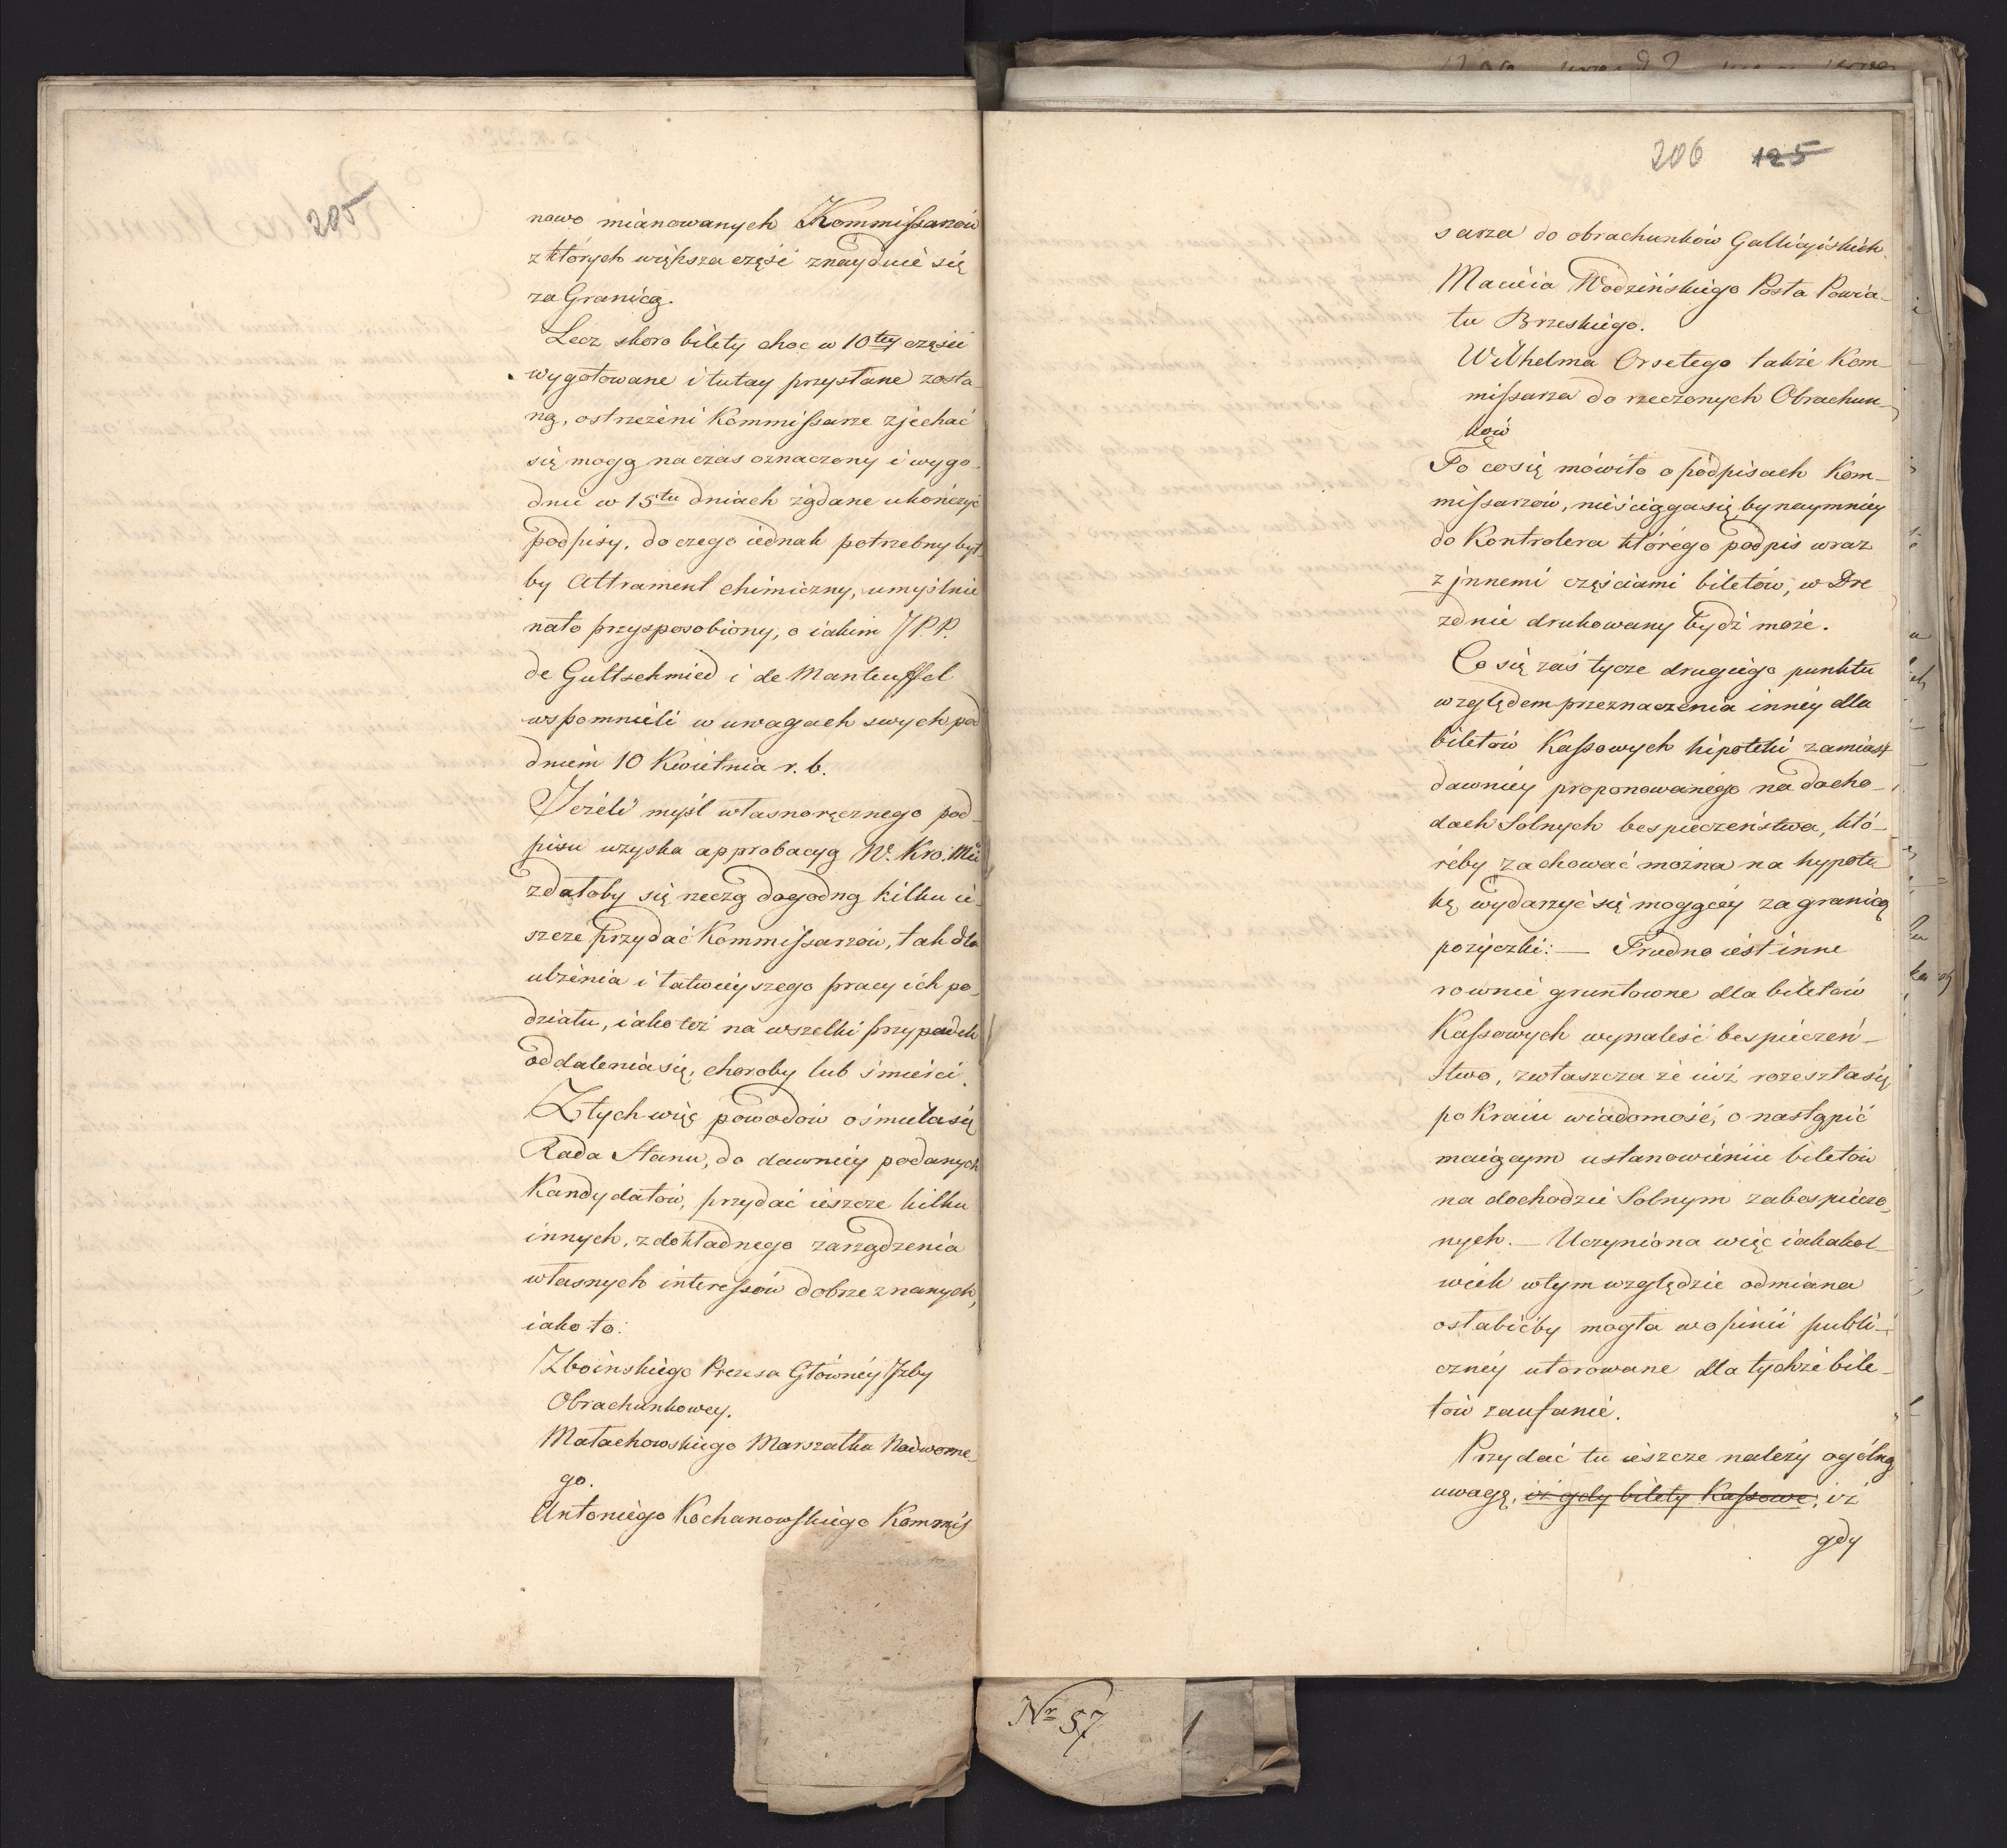 205
nowo mianowanych Kommissarzów
z których większa część znayduie się
za Granicą.
Lecz skoro bilety choc w 10tey części
wygotowane i tutay przysłane zosta-
ną, ostrzeżeni Kommissarze zjechać
się mogą na czas oznaczony i wygo-
dnie w 15tu dniach żądane ukończyć
podpisy, do czego iednak potrzebny był
by Attrament chimiczny, umyślnie
nato przysposobiony, o iakim JP.P.
de Guttschmied i de Manteuffel
wspomnieli w uwagach swych pod
dniem 10 Kwietnia r. b.
Jeżeli myśl własnoręcznego pod-
pisu uzyska approbacyą W. Kro. Mci
zdałoby się rzeczą dogodną kilku ie-
szcze przydać Kommissarzów, tak dla
ulżenia i łatwieyszego pracy ich po-
działu, iako też na wszelki przypadek
oddalenia się, choroby lub śmierci.
Z tych więc powodów ośmiela się
Rada Stanu, do dawniey podanych
Kandydatów, przydać ieszcze kilku
innych, z dokładnego zarządzenia
własnych interessów dobrze znanych,
iako to:
Zboinskiego Prezesa Główney Jzby
Obrachunkowey.
Małachowskiego Marszałka Nadworne-
go.
Antoniego Kochanowskiego Kommis
206 125
sarza do obrachunków Gallicyiskich.
Macieia Wodzińskiego Posła Powia-
tu Brzeskiego.
Wilhelma Orsetego także Kom-
missarza do rzeczonych Obrachun-
ków
To co się mówiło o podpisach Kom-
missarzów, nie ściąga się by naymniey
do Kontrolera którego podpis wraz
z jnnemi częściami biletów, w Dre
zdnie drukowany bydź może.
Co się zaś tycze drugiego punktu
względem przeznaczenia inney dla
biletów Kassowych hipoteki zamiast
dawniey proponowanego na docho-
dach Solnych bespieczeństwa, któ-
reby zachować można na hypote
kę wydarzyć się mogącey za granicą
pożyczki: — Trudno iest inne
rownie gruntowne dla biletów
Kassowych wynaleść bespieczeń-
stwo, zwłaszcza że iuż rozeszła się
po Kraiu wiadomość, o nastąpić
maiącym ustanowieniu biletów
na dochodzie Solnym zabespieczo-
nych. — Uczyniona więc iakakol-
wiek w tym względzie odmiana
osłabićby mogła w opinii publi-
czney utorowane dla tychże bile-
tów zaufanie.
Przydać tu ieszcze należy ogólną
uwagę, iż gdy bilety Kassowe, iż
gdy
Nr 57